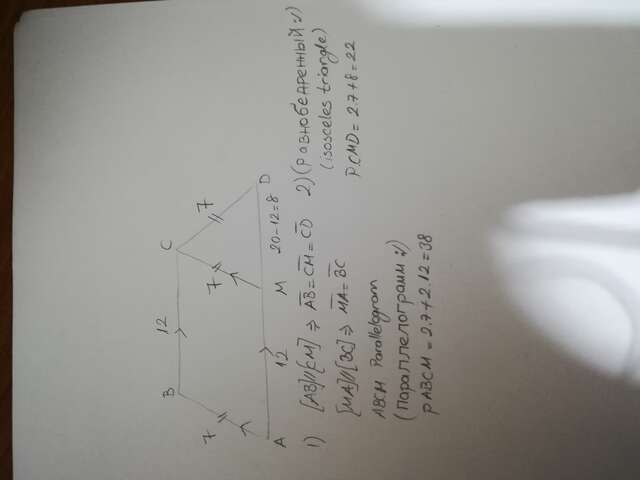 B 12 C
7 7 7
A 12 M 20-12=8 D
1) [AB]//[CM] ⇒ AB=CM=CD
[MA]//[BC] ⇒ MA=BC
ABCM Parallelogram
(параллелограмм :/)
PABCM = 2.7+2.12=38
2) (равнобедренный :/)
(isosceles triangle)
P.CMD = 2.7+8=22